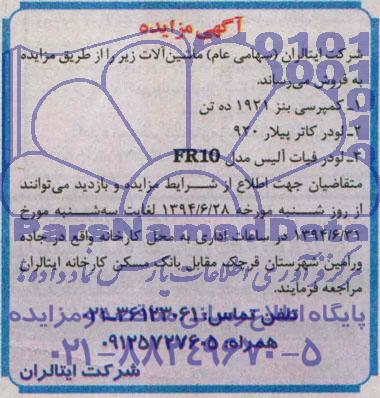 آگهی مزایده
شرکت ایتالران (سهامی عام) ماشین‌آلات زیر را از طریق مزایده
به فروش می‌رساند.
۱ـ کمپرسی بنز ۱۹۲۱ ده تن
۲ـ لودر کاتر پیلار ۹۲۰
۳ـ لودر فیات آلیس مدل FR10
متقاضیان جهت اطلاع از شرایط مزایده و بازدید می‌توانند
از روز شنبه مورخه ۱۳۹۴/۶/۲۸ لغایت سه‌شنبه مورخ
۱۳۹۴/۶/۳۱ در ساعات اداری به محل کارخانه واقع در جاده
ورامین شهرستان قرچک مقابل بانک مسکن کارخانه ایتالران
مراجعه فرمایند.
تلفن تماس: ۳۶۱۲۳۰۶۱-۰۲۱
همراه: ۰۹۱۲۵۷۲۷۶۰۵
شرکت ایتالران
ParsNamadData
پایگاه اطلاع رسانی مناقصه و مزایده
۰۲۱-۸۸۳۴۹۶۷۰-۵